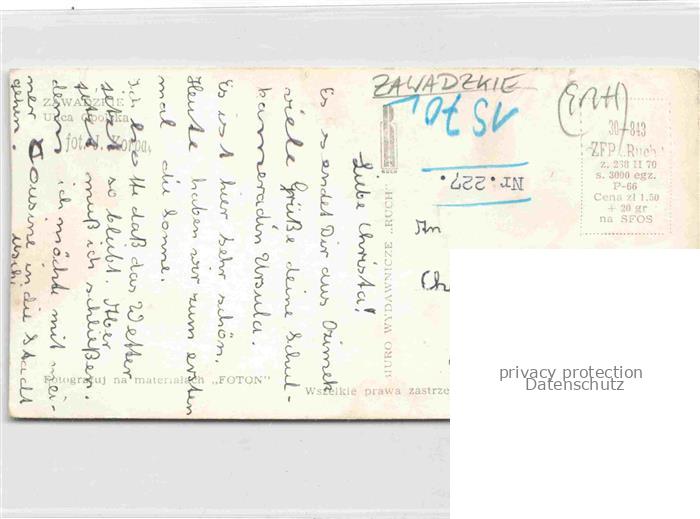 ZAWADZKIE
Ulica Opolska
fot. J. Korpal
Fotografuj na materiałach „FOTON”
Wszelkie prawa zastrze
BIURO WYDAWNICZE „RUCH”
ZAWADZKIE
1970
Nr. 227.
30-843
ZFP „Ruch”
z. 238 II 70
s. 3000 egz.
P-66
Cena zł 1.50
+ 20 gr
na SFOS
Liebe Christa!
Es sendet Dir aus Ozimek
viele Grüße deine Schul-
kameradin Ursula.
Es ist hier sehr schön.
Heute haben wir zum ersten
mal die Sonne.
Ich hoffe daß das Wetter
jetzt so bleibt. Aber
jetzt muß ich schließen.
denn ich möchte mit mei-
ner Cousine in die Stadt
gehen. Uschi
An
Ch
privacy protection
Datenschutz